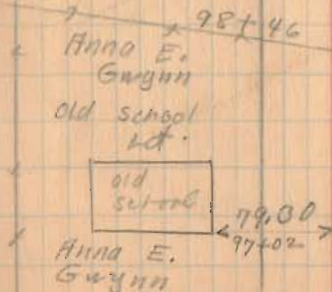 98+46
Anna E.
Gwynn
Old School
Lot.
old
school
79.00
97+02
Anna E.
Gwynn